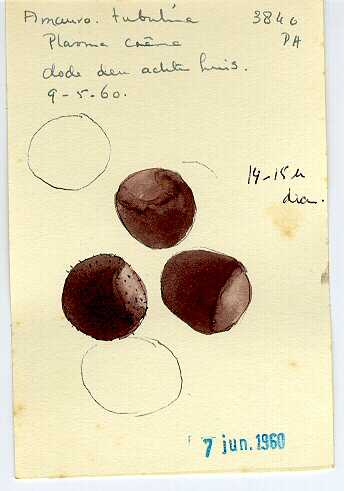 Amauro. tubulina 3840
Plasma crême PA
dode den achter huis.
9-5-60.
14-15 µ
dia.
7 jun. 1960